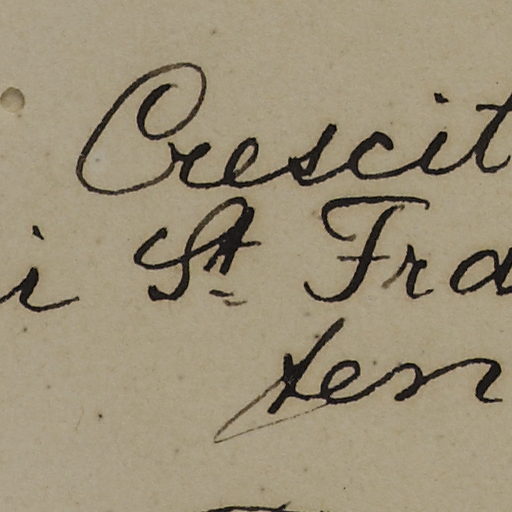 Crescit
i St Fra
ten